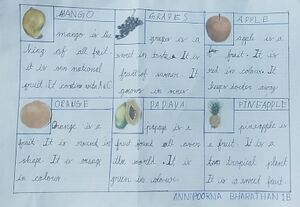 MANGO
mango is the
king of all fruit
it is our national
fruit. It contain vita A&C
GRAPES
grapes is a
sweet in taste. It is
fruit of summer. It
grows in
APPLE
apple is a
fruit. It is
red in colour. It
keeps doctor away
ORANGE
Orange is a
fruit. It is round in
shape. It is orange
in colour.
PAPAYA
papaya is a
fruit found all over
the world. It is
green in colour.
PINEAPPLE
pineapple is
a fruit. It is a
tropical plant
It is a sweet fruit.
ANNPOORNA BHARATHAN 1B